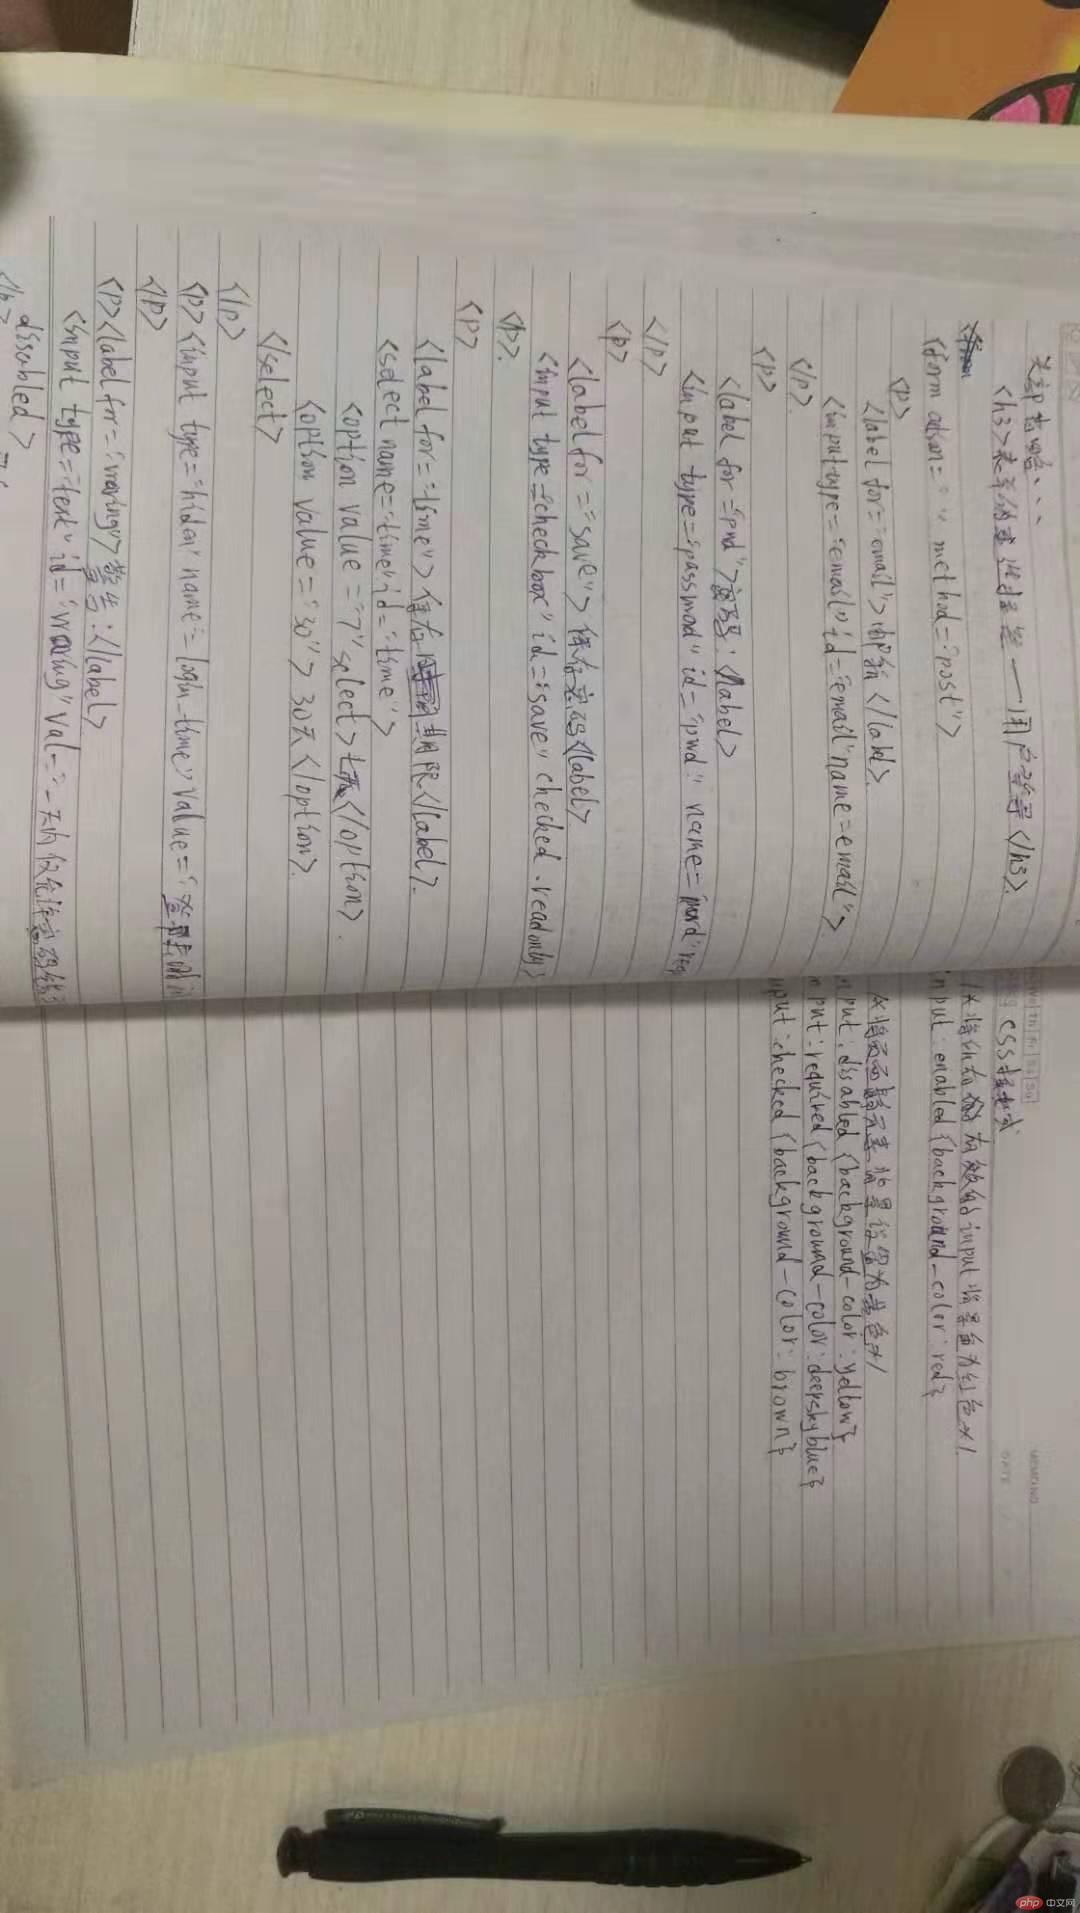 头部省略...
<h3>表单伪类选择器——用户登录</h3>.
<form action=" " method="post">
<p>
<label for="email">邮箱</label>.
<input type="email" id="email" name=email">
</p>.
<p>
<label for="pwd">密码:</label>
<input type="password" id="pwd" name="pwd" req
</p>
<p>
<label for="save">保存密码</label>
<input type="checkbox" id="save" checked readonly>
<p>.
<p>
<label for="time">保存期限</label>.
<select name="time" id="time">
<option value="7" select>七天</option>.
<option value="30">30天</option>.
</select>
</p>
<p><input type="hiden" name="login-time" value="登录时间
</p>
<p><label for="waring">警告:</label>
<input type="text" id="waring" val
disabled>
css样式
input 背景色为红色*/
nput:enabled{background-color:red}
黄色*/
nput:disabled{background-color:yellow}
nput:required{background-color:deepskyblue}
nput:checked{background-color:brown}
MEMO NO.
DATE
php 中文网